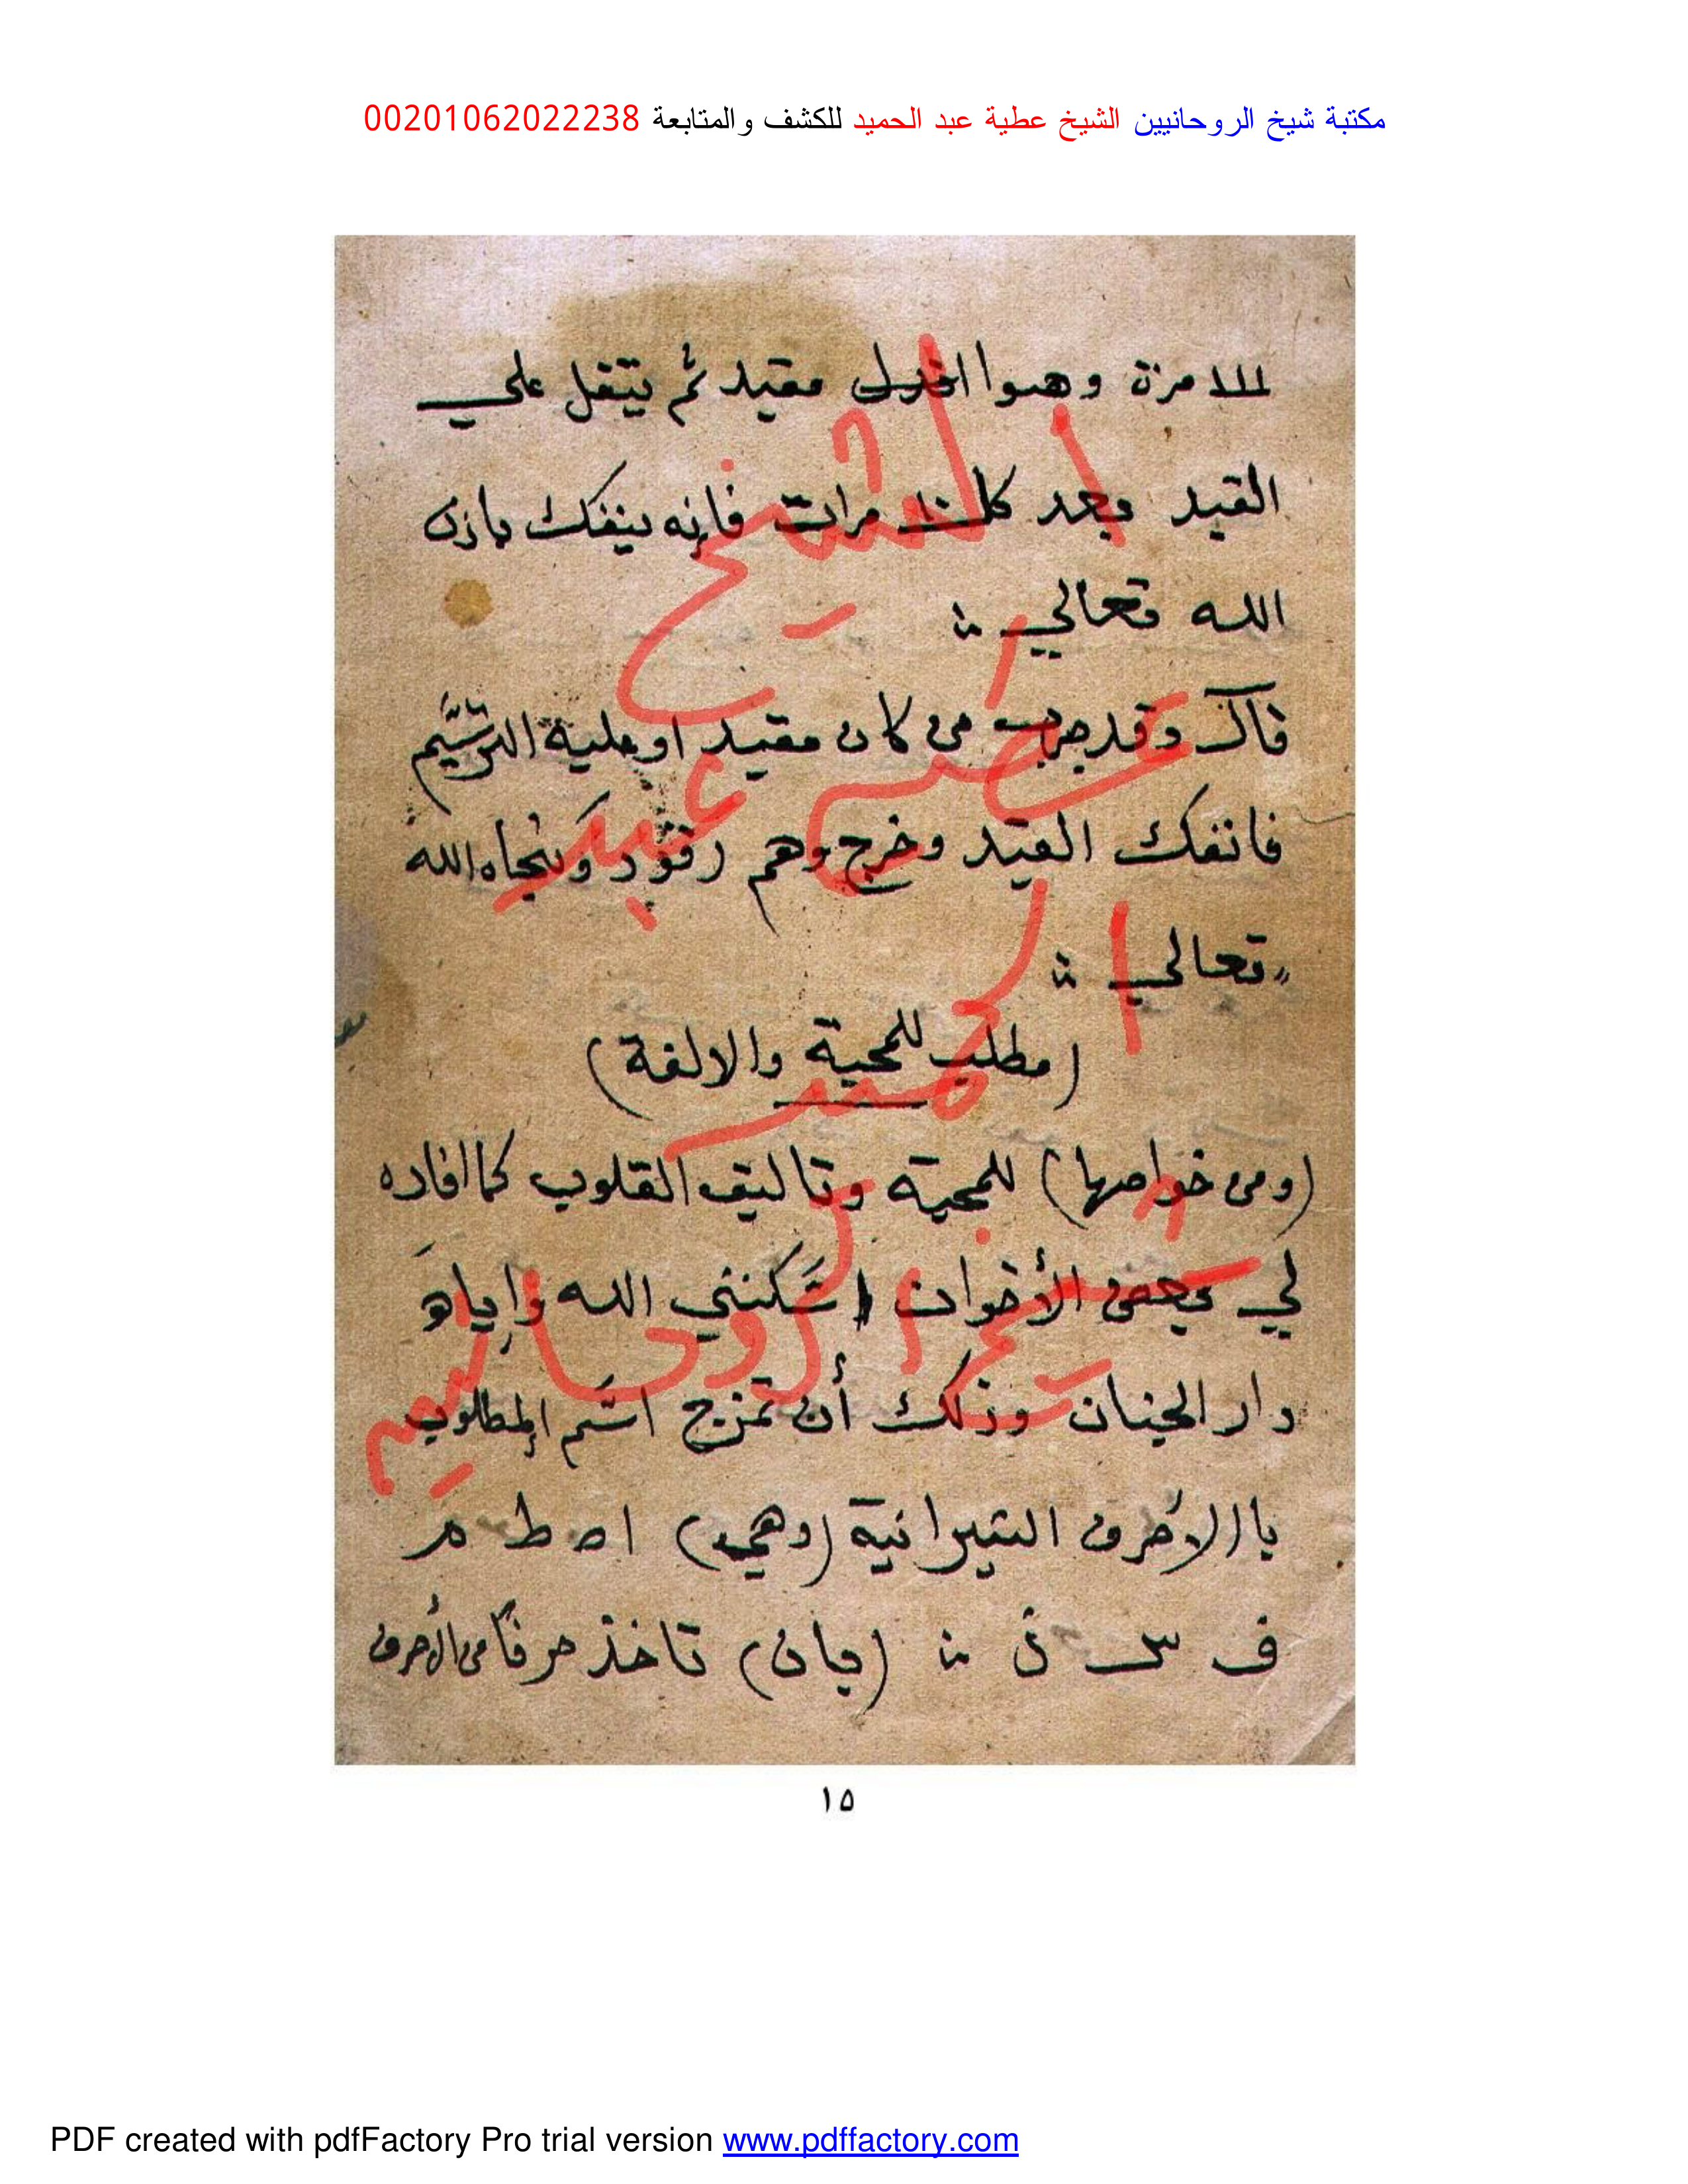 مكتبة شيخ الروحانيين الشيخ عطية عبد الحميد للكشف والمتابعة 00201062022238
١١١١ مرة وهوا مقيد ثم يتفل علي
القيد بعد كل مرات فانه ينفك باذن
الله تعالي
قال وقد جرب من كان مقيد او عليه الترسيم
فانفك القيد وخرج وهم رقود ونجاه الله
تعالي
(مطلب للمحبة والالفة)
(ومن خواصها) للمحبة وتاليف القلوب كما افاده
لي بعض الأخوان اسكنني الله وإياه
دار الجنان وذلك أن تمزج اسم المطلوب
باالاحرف النيرانية (وهي) ا ه ط م
ف س ذ (بان) تاخذ حرفا من الأحرف
الشيخ
عطيه عبد
الحميد
شيخ الروحانيين
١٥
PDF created with pdfFactory Pro trial version www.pdffactory.com